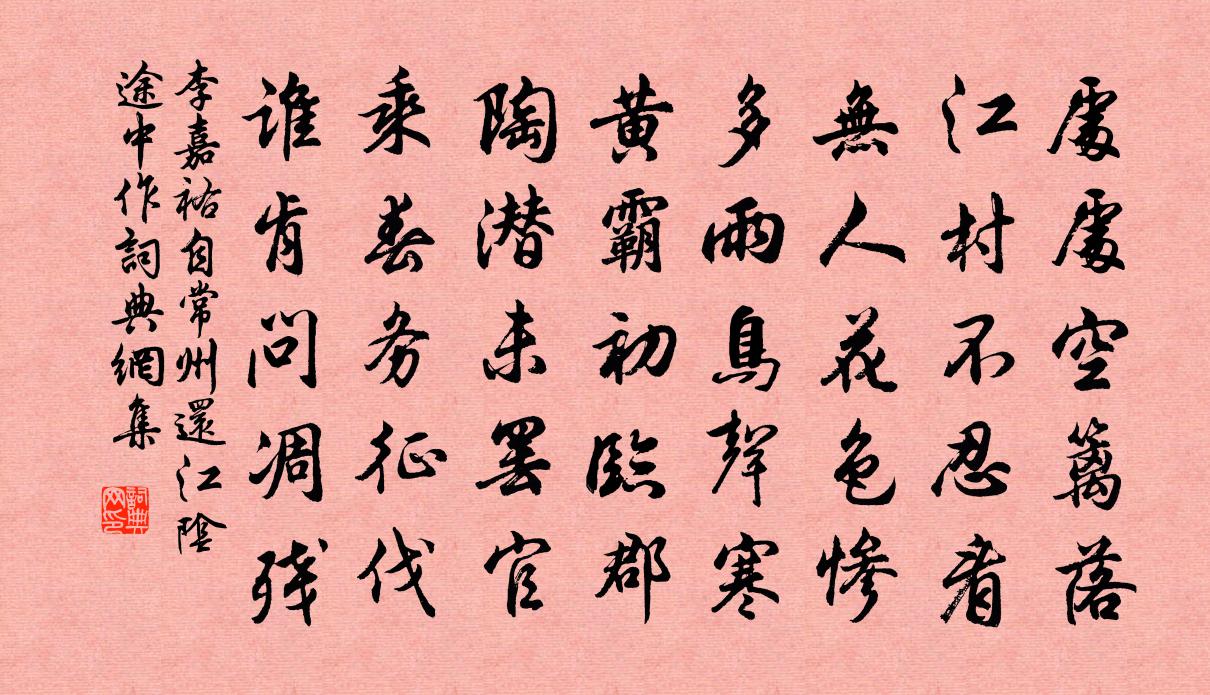 處處空篱落
江村不忍看
無人花色惨
多雨鳥聲寒
黄霸初臨郡
陶潜未罷官
乘春务征伐
谁肯问凋残
李嘉祐自常州還江陰
途中作詞典網集
詞典
网印